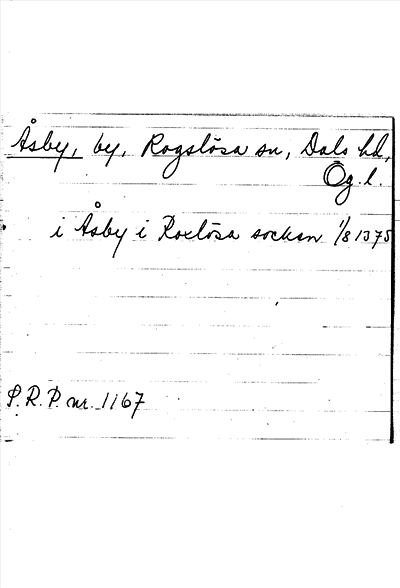 Åsby, by, Rogslösa sn, Dals hd,
Ög. l.
i Åsby i Roxlösa sockan 1/8 1375
P.R.P. nr. 1167